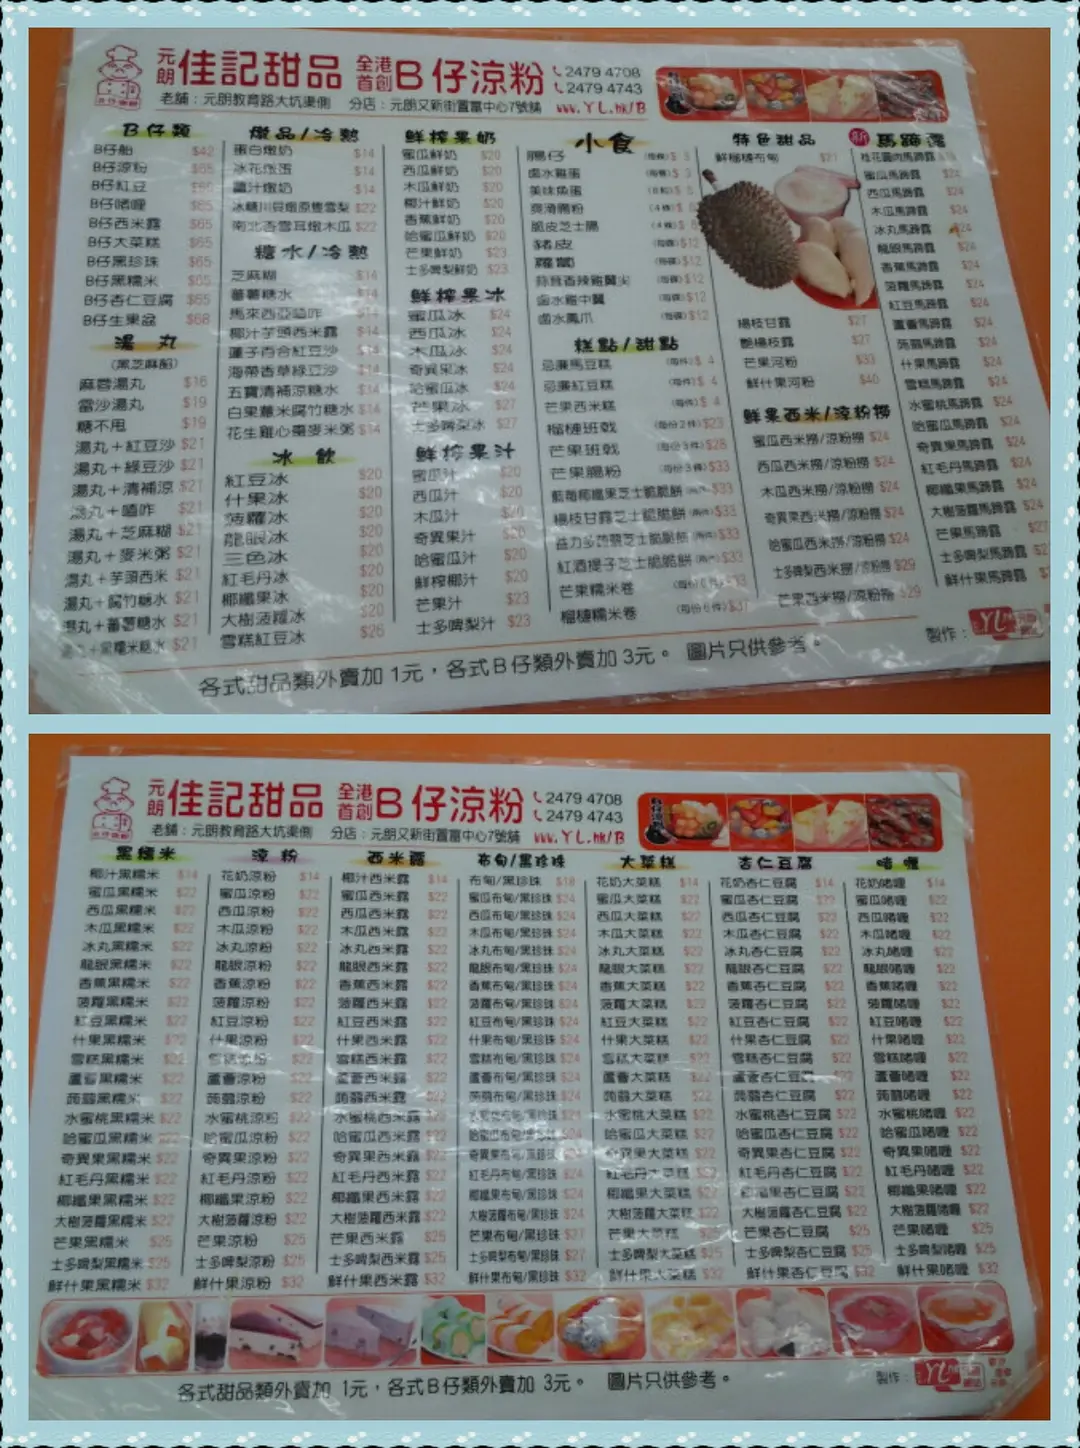 元朗 佳記甜品 全港首創 B仔涼粉 2479 4708
2479 4743
老舖：元朗教育路大坑渠側 分店：元朗又新街置富中心7號舖 www.YL.hk/B
B仔類
B仔船 $42
B仔涼粉 $65
B仔紅豆 $65
B仔啫喱 $65
B仔西米露 $65
B仔大菜糕 $65
B仔黑珍珠 $65
B仔黑糯米 $65
B仔杏仁豆腐 $65
B仔生果盆 $68
湯丸
(黑芝麻餡)
麻蓉湯丸 $16
雷沙湯丸 $19
糖不甩 $19
湯丸＋紅豆沙 $21
湯丸＋綠豆沙 $21
湯丸＋清補涼 $21
湯丸＋喳咋 $21
湯丸＋芝麻糊 $21
湯丸＋麥米粥 $21
湯丸＋芋頭西米 $21
湯丸＋腐竹糖水 $21
湯丸＋蕃薯糖水 $21
湯丸＋黑糯米糖水 $21
燉品/冷熱
蛋白燉奶 $14
冰花燉蛋 $14
薑汁燉奶 $14
冰糖川貝燉原隻雪梨 $22
南北杏雪耳燉木瓜 $22
糖水/冷熱
芝麻糊 $14
蕃薯糖水 $14
馬來西亞喳咋 $14
椰汁芋頭西米露 $14
蓮子百合紅豆沙 $14
海帶香草綠豆沙 $14
五寶清補涼糖水 $14
白果薏米腐竹糖水 $14
花生雞心棗麥米粥 $14
冰飲
紅豆冰 $20
什果冰 $20
菠蘿冰 $20
龍眼冰 $20
三色冰 $20
紅毛丹冰 $20
椰纖果冰 $20
大樹菠蘿冰 $20
雪糕紅豆冰 $26
鮮榨果奶
蜜瓜鮮奶 $20
西瓜鮮奶 $20
木瓜鮮奶 $20
椰汁鮮奶 $20
香蕉鮮奶 $20
哈蜜瓜鮮奶 $20
芒果鮮奶 $23
士多啤梨鮮奶 $23
鮮榨果冰
蜜瓜冰 $24
西瓜冰 $24
木瓜冰 $24
奇異果冰 $24
哈蜜瓜冰 $24
芒果冰 $27
士多啤梨冰 $27
鮮榨果汁
蜜瓜汁 $20
西瓜汁 $20
木瓜汁 $20
奇異果汁 $20
哈蜜瓜汁 $20
鮮榨椰汁 $20
芒果汁 $23
士多啤梨汁 $23
小食
腸仔
鹵水雞蛋 $ 3
美味魚蛋 $ 5
爽滑腸粉 (4條)
脆皮芝士腸
豬皮 $12
蘿蔔 $12
蒜茸香辣雞翼尖 $12
鹵水雞中翼 $12
鹵水鳳爪 $12
糕點/甜點
忌廉馬豆糕 (每件)$ 4
忌廉紅豆糕 (每件)$ 4
芒果西米糕 (每件)$ 4
榴槤班戟 (每份2件)$23
芒果班戟 $28
芒果腸粉 (每份3件)$33
藍莓椰纖果芝士脆脆餅 $33
楊枝甘露芝士脆脆餅 $33
益力多蒟蒻芝士脆脆餅 $33
紅酒提子芝士脆脆餅 $33
芒果糯米卷
榴槤糯米卷 (每份6件)$37
特色甜品
鮮榴槤布甸
楊枝甘露 $27
艷楊枝露 $27
芒果河粉 $33
鮮什果河粉 $40
鮮果西米/涼粉撈
蜜瓜西米撈/涼粉撈 $24
西瓜西米撈/涼粉撈 $24
木瓜西米撈/涼粉撈 $24
奇異果西米撈/涼粉撈 $24
哈蜜瓜西米撈/涼粉撈 $24
士多啤梨西米撈/涼粉撈 $29
芒果西米撈/涼粉撈 $29
新 馬蹄露
桂花圓肉馬蹄露
蜜瓜馬蹄露 $24
西瓜馬蹄露 $24
木瓜馬蹄露 $24
冰丸馬蹄露 $24
龍眼馬蹄露 $24
香蕉馬蹄露 $24
菠蘿馬蹄露 $24
紅豆馬蹄露 $24
蘆薈馬蹄露 $24
蒟蒻馬蹄露 $24
什果馬蹄露 $24
雪糕馬蹄露 $24
水蜜桃馬蹄露 $24
哈蜜瓜馬蹄露 $24
奇異果馬蹄露 $24
紅毛丹馬蹄露 $24
椰纖果馬蹄露 $24
大樹菠蘿馬蹄露 $24
芒果馬蹄露
士多啤梨馬蹄露
鮮什果馬蹄露
各式甜品類外賣加 1元，各式B仔類外賣加 3元。 圖片只供參考。
製作： YL
元朗 佳記甜品 全港首創 B仔涼粉 2479 4708
2479 4743
老舖：元朗教育路大坑渠側 分店：元朗又新街置富中心7號舖 www.YL.hk/B
黑糯米 涼粉 西米露 布甸/黑珍珠 大菜糕 杏仁豆腐 啫喱
椰汁黑糯米 $14 花奶涼粉 $14 椰汁西米露 $14 布甸/黑珍珠 $18 花奶大菜糕 $14 花奶杏仁豆腐 $14 花奶啫喱 $14
蜜瓜黑糯米 $22 蜜瓜涼粉 $22 蜜瓜西米露 $22 蜜瓜布甸/黑珍珠 $24 蜜瓜大菜糕 $22 蜜瓜杏仁豆腐 $22 蜜瓜啫喱 $22
西瓜黑糯米 $22 西瓜涼粉 $22 西瓜西米露 $22 西瓜布甸/黑珍珠 $24 西瓜大菜糕 $22 西瓜杏仁豆腐 $22 西瓜啫喱 $22
木瓜黑糯米 $22 木瓜涼粉 $22 木瓜西米露 $22 木瓜布甸/黑珍珠 $24 木瓜大菜糕 $22 木瓜杏仁豆腐 $22 木瓜啫喱 $22
冰丸黑糯米 $22 冰丸涼粉 $22 冰丸西米露 $22 冰丸布甸/黑珍珠 $24 冰丸大菜糕 $22 冰丸杏仁豆腐 $22 冰丸啫喱 $22
龍眼黑糯米 $22 龍眼涼粉 $22 龍眼西米露 $22 龍眼布甸/黑珍珠 $24 龍眼大菜糕 $22 龍眼杏仁豆腐 $22 龍眼啫喱 $22
香蕉黑糯米 $22 香蕉涼粉 $22 香蕉西米露 $22 香蕉布甸/黑珍珠 $24 香蕉大菜糕 $22 香蕉杏仁豆腐 $22 香蕉啫喱 $22
菠蘿黑糯米 $22 菠蘿涼粉 $22 菠蘿西米露 $22 菠蘿布甸/黑珍珠 $24 菠蘿大菜糕 $22 菠蘿杏仁豆腐 $22 菠蘿啫喱 $22
紅豆黑糯米 $22 紅豆涼粉 $22 紅豆西米露 $22 紅豆布甸/黑珍珠 $24 紅豆大菜糕 $22 紅豆杏仁豆腐 $22 紅豆啫喱 $22
什果黑糯米 $22 什果涼粉 $22 什果西米露 $22 什果布甸/黑珍珠 $24 什果大菜糕 $22 什果杏仁豆腐 $22 什果啫喱 $22
雪糕黑糯米 $22 雪糕涼粉 $22 雪糕西米露 $22 雪糕布甸/黑珍珠 $24 雪糕大菜糕 $22 雪糕杏仁豆腐 $22 雪糕啫喱 $22
蘆薈黑糯米 $22 蘆薈涼粉 $22 蘆薈西米露 $22 蘆薈布甸/黑珍珠 $24 蘆薈大菜糕 $22 蘆薈杏仁豆腐 $22 蘆薈啫喱 $22
蒟蒻黑糯米 $22 蒟蒻涼粉 $22 蒟蒻西米露 $22 蒟蒻布甸/黑珍珠 $24 蒟蒻大菜糕 $22 蒟蒻杏仁豆腐 $22 蒟蒻啫喱 $22
水蜜桃黑糯米 $22 水蜜桃涼粉 $22 水蜜桃西米露 $22 水蜜桃布甸/黑珍珠 $24 水蜜桃大菜糕 $22 水蜜桃杏仁豆腐 $22 水蜜桃啫喱 $22
哈蜜瓜黑糯米 $22 哈蜜瓜涼粉 $22 哈蜜瓜西米露 $22 哈蜜瓜布甸/黑珍珠 $24 哈蜜瓜大菜糕 $22 哈蜜瓜杏仁豆腐 $22 哈蜜瓜啫喱 $22
奇異果黑糯米 $22 奇異果涼粉 $22 奇異果西米露 $22 奇異果布甸/黑珍珠 $24 奇異果大菜糕 $22 奇異果杏仁豆腐 $22 奇異果啫喱 $22
紅毛丹黑糯米 $22 紅毛丹涼粉 $22 紅毛丹西米露 $22 紅毛丹布甸/黑珍珠 $24 紅毛丹大菜糕 $22 紅毛丹杏仁豆腐 $22 紅毛丹啫喱 $22
椰纖果黑糯米 $22 椰纖果涼粉 $22 椰纖果西米露 $22 椰纖果布甸/黑珍珠 $24 椰纖果大菜糕 $22 椰纖果杏仁豆腐 $22 椰纖果啫喱 $22
大樹菠蘿黑糯米 $22 大樹菠蘿涼粉 $22 大樹菠蘿西米露 $22 大樹菠蘿布甸/黑珍珠 $24 大樹菠蘿大菜糕 $22 大樹菠蘿杏仁豆腐 $22 大樹菠蘿啫喱 $22
芒果黑糯米 $25 芒果涼粉 $25 芒果西米露 $25 芒果布甸/黑珍珠 $27 芒果大菜糕 $25 芒果杏仁豆腐 $25 芒果啫喱 $25
士多啤梨黑糯米 $25 士多啤梨涼粉 $25 士多啤梨西米露 $25 士多啤梨布甸/黑珍珠 $27 士多啤梨大菜糕 $25 士多啤梨杏仁豆腐 $25 士多啤梨啫喱 $25
鮮什果黑糯米 $32 鮮什果涼粉 $32 鮮什果西米露 $32 鮮什果布甸/黑珍珠 $32 鮮什果大菜糕 $32 鮮什果杏仁豆腐 $32 鮮什果啫喱 $32
各式甜品類外賣加 1元，各式B仔類外賣加 3元。 圖片只供參考。
製作： YL